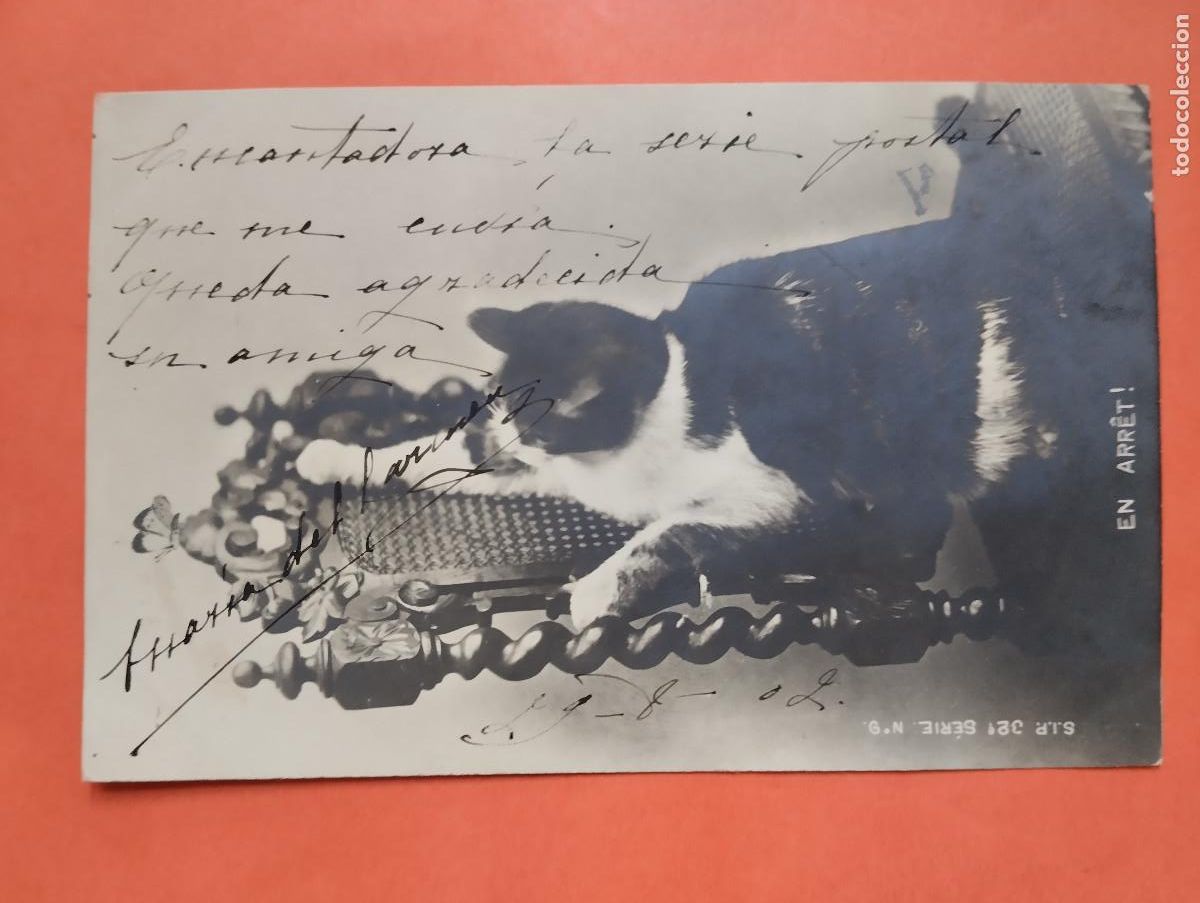 Encantadora, la serie postal
que me envía.
Queda agradecida
su amiga
María del Carmen
29-8-02.
EN ARRÊT!
S.I.P. 32e SÉRIE. N°9.
todocoleccion